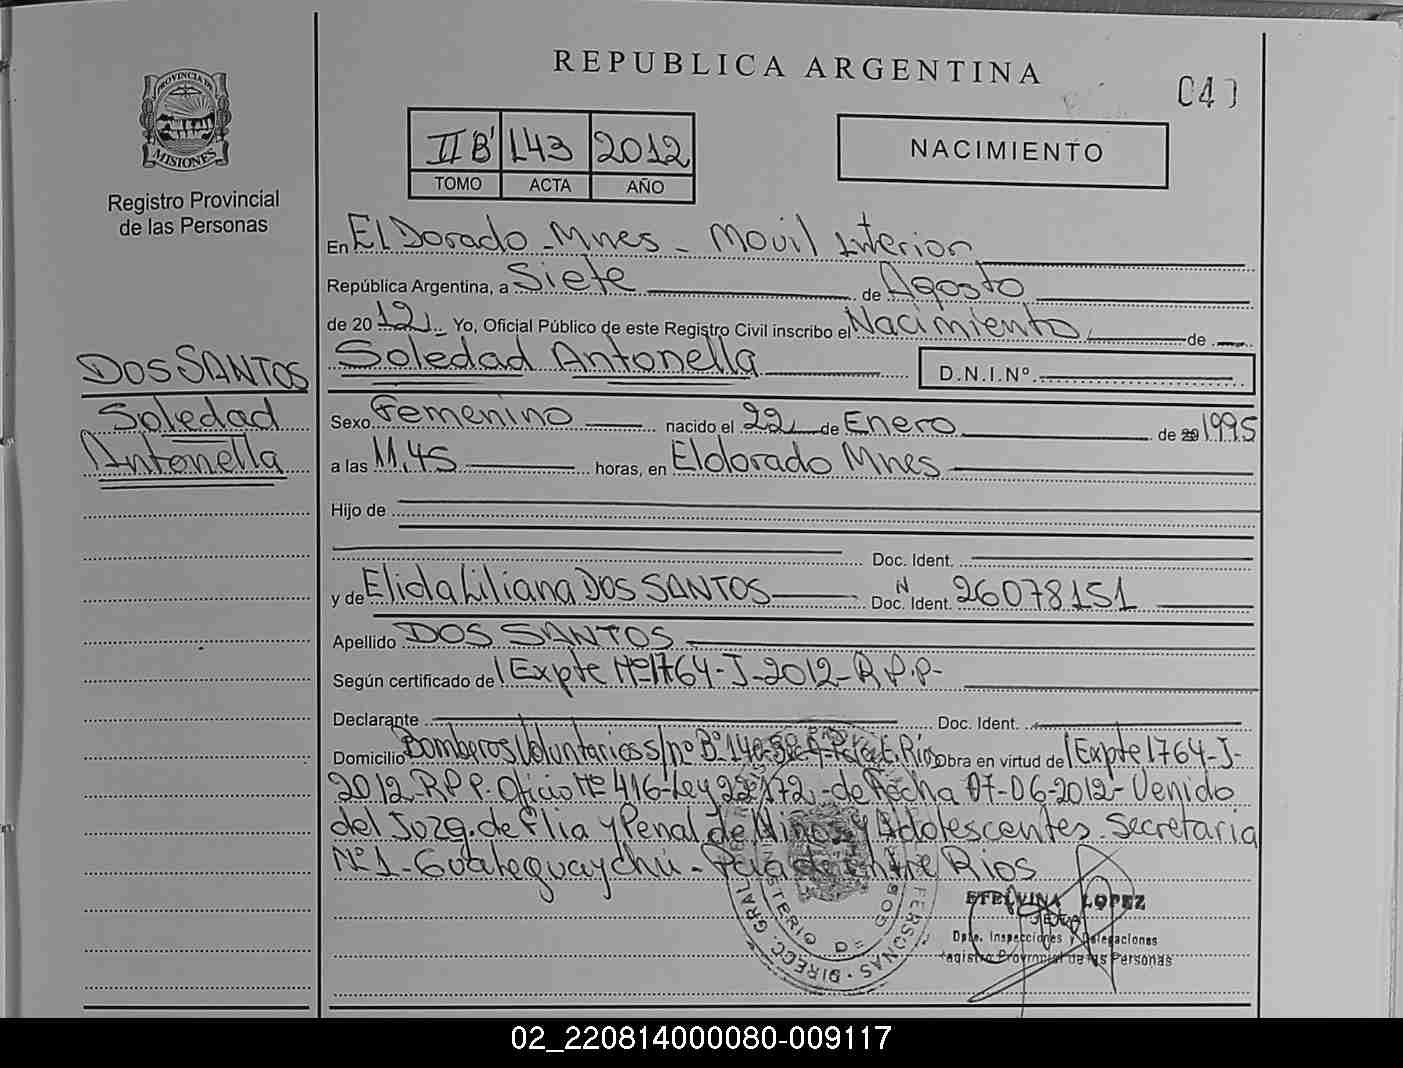 REPUBLICA ARGENTINA
PROVINCIA DE
MISIONES
Registro Provincial
de las Personas
II B' 143 2012
TOMO ACTA AÑO
NACIMIENTO
En El Dorado - Mnes - Movil Interior
República Argentina, a Siete de Agosto
de 20 12 Yo, Oficial Público de este Registro Civil inscribo el Nacimiento de
Soledad Antonella D.N.I.Nº
DOS SANTOS
Soledad
Antonella
Sexo Femenino nacido el 22 de Enero de 1995
a las 11,45 horas, en Eldorado Mnes
Hijo de
Doc. Ident.
y de Elida Liliana DOS SANTOS Doc. Ident. N 26078151
Apellido DOS SANTOS
Según certificado de Expte Nº 1764-J-2012-R.P.P-
Declarante Doc. Ident.
Domicilio Bomberos Voluntarios s/nº Bº 140 E. Rios Obra en virtud de Expte 1764-J-
2012 R.P.P. Oficio Nº 416-Ley 22172-de Fecha 07-06-2012- Venido
del Juzg. de Flia y Penal de Niños y Adolescentes. Secretaria
Nº 1-Gualeguaychú-Pcia de Entre Rios
ETELVINA LOPEZ
JEFA
Dpto. Inspecciones y Delegaciones
Registro Provincial de las Personas
DIRECC. GRAL.
PERSONAS
MINISTERIO DE GOB
02_220814000080-009117